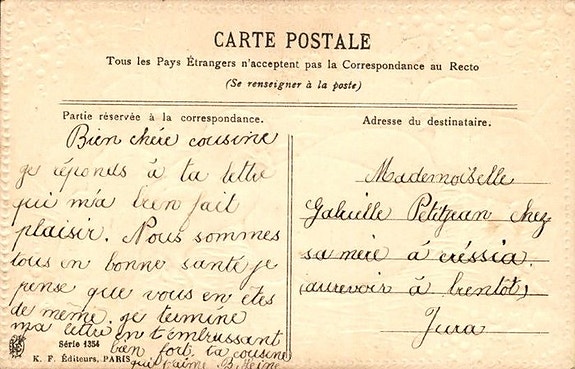 CARTE POSTALE
Tous les Pays Étrangers n'acceptent pas la Correspondance au Recto
(Se renseigner à la poste)
Partie réservée à la correspondance.
Bien chère cousine
je réponds à ta lettre
qui m'a bien fait
plaisir. Nous sommes
tous en bonne santé je
pense que vous en etes
de meme. je termine
ma lettre en t'embrassant
bien fort. ta cousine
qui t'aime B.
Série 1354
K. F. Éditeurs, PARIS
Adresse du destinataire.
Mademoiselle
Gabrielle Petitjean chez
sa mère à créssia
(aurevoir à bientot)
Jura